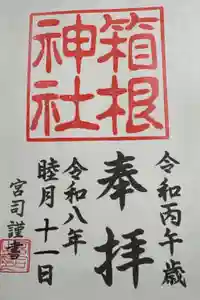 箱根
神社
令和丙午歳
奉拝
令和八年
睦月十一日
宮司謹書